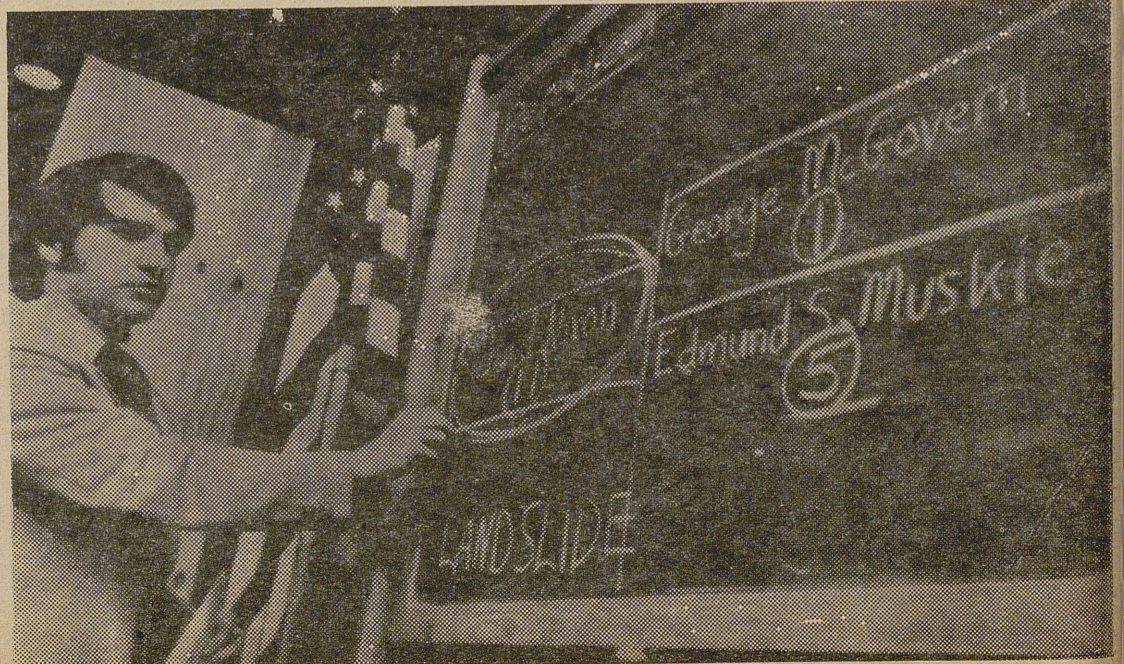 George McGovern
Edmund S. Muskie
5
LANDSLIDE